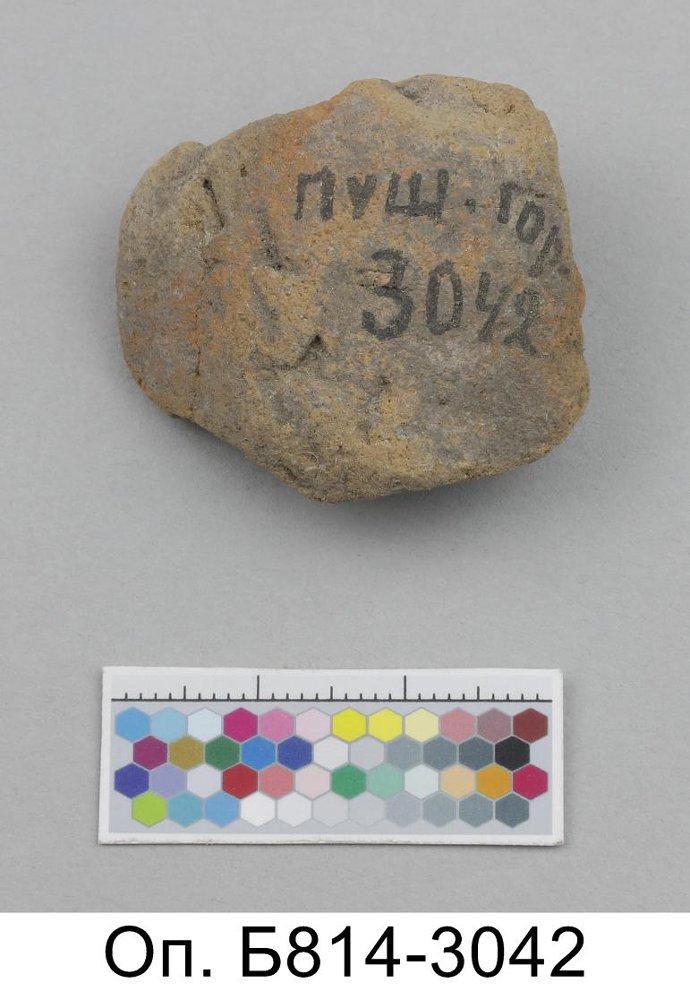 пуш. гор.
3042
Оп. Б814-3042